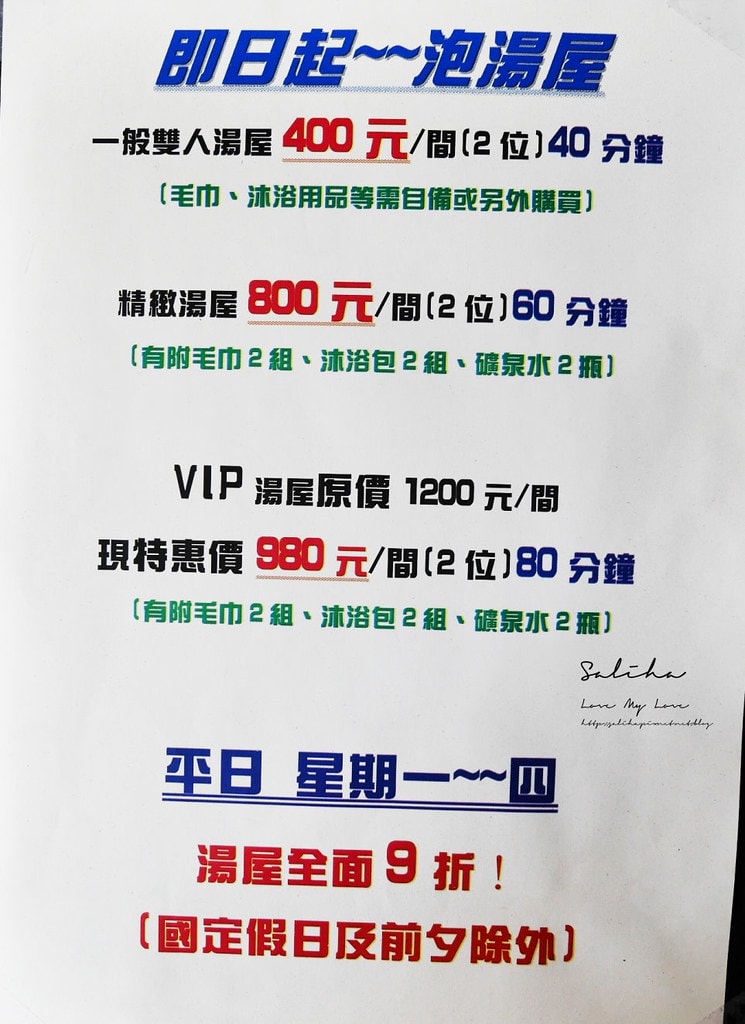 即日起~~泡湯屋
一般雙人湯屋 400 元/間(2 位)40 分鐘
(毛巾、沐浴用品等需自備或另外購買)
精緻湯屋 800 元/間(2 位)60 分鐘
(有附毛巾 2 組、沐浴包 2 組、礦泉水 2 瓶)
VIP 湯屋原價 1200 元/間
現特惠價 980 元/間(2 位)80 分鐘
(有附毛巾 2 組、沐浴包 2 組、礦泉水 2 瓶)
Saliha
Love My Love
平日 星期一~~四
湯屋全面 9 折！
(國定假日及前夕除外)